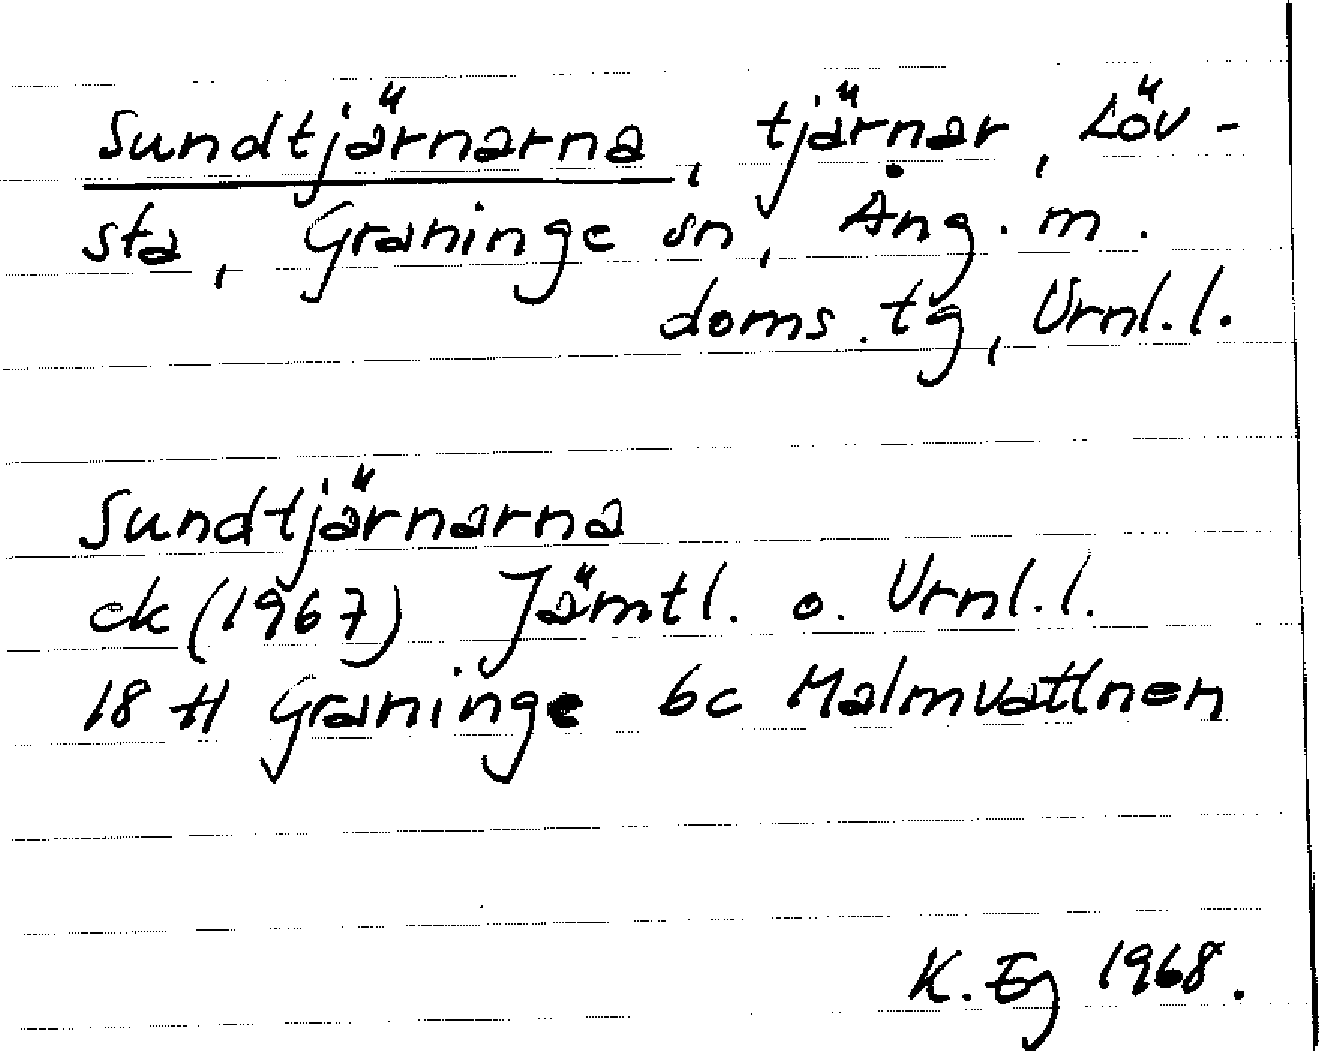 Sundtjärnarna, tjärnar, Löv-
sta, Graninge sn, Ång. m.
doms.tg, Vrnl.l.
Sundtjärnarna
ek (1967) Jämtl. o. Vrnl.l.
18 H Graninge 6c Malmvattnen
K. Eg 1968.